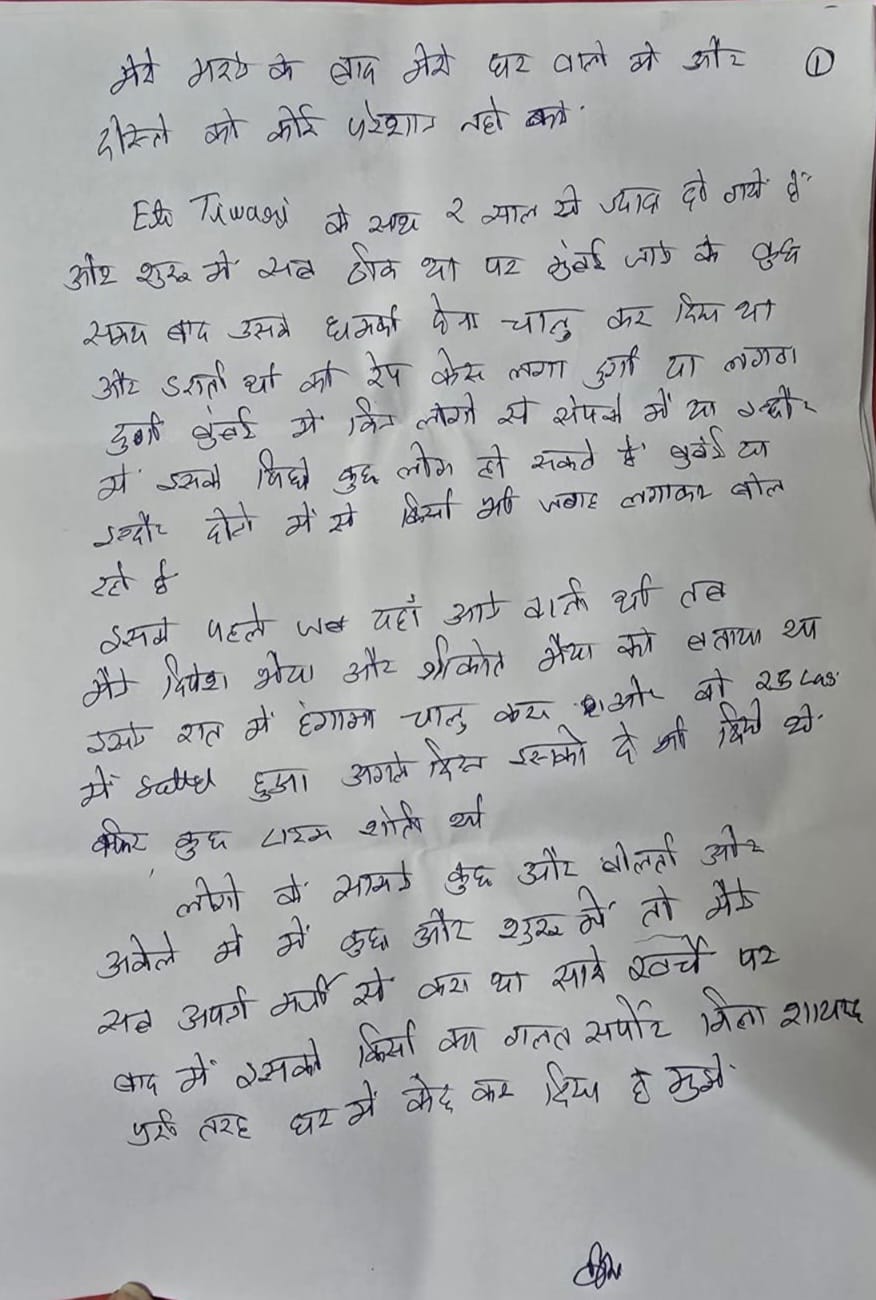 ①
मेरे मरने के बाद मेरे घर वालो को और
दोस्तो को कोई परेशान नही करे.
Tiwari के साथ २ साल से ज्यादा हो गये है
और शुरू में सब ठीक था पर मुंबई जाने के कुछ
समय बाद उसने धमकी देना चालु कर दिया था
और डराती थी की रेप केस लगा दुगी या लगवा
दुगी मुंबई में किन लोगो से संपर्क में या इन्दौर
में इसके पिछे कुछ लोग हो सकते है मुबंई या
इन्दौर दोनो में से किसी भी जगह लगाकर बोल
रहे है
इससे पहले जब यहाँ आने वाली थी तब
मैने दिपेश भैया और श्रीकांत भैया को बताया था
इसने रात में हंगामा चालु करा और वो 25 Lac
में हुआ अगले दिन इसको दे भी दिये थे.
फिर कुछ टाइम शांति थी
लोगो के सामने कुछ और बोलती और
अकेले में में कुछ और शुरू में तो मैने
सब अपनी मर्जी से करा था सारे खर्चे पर
बाद में इसको किसी का गलत सर्पोट मिला शायद
पुरी तरह घर में केद कर दिया है मुझे.